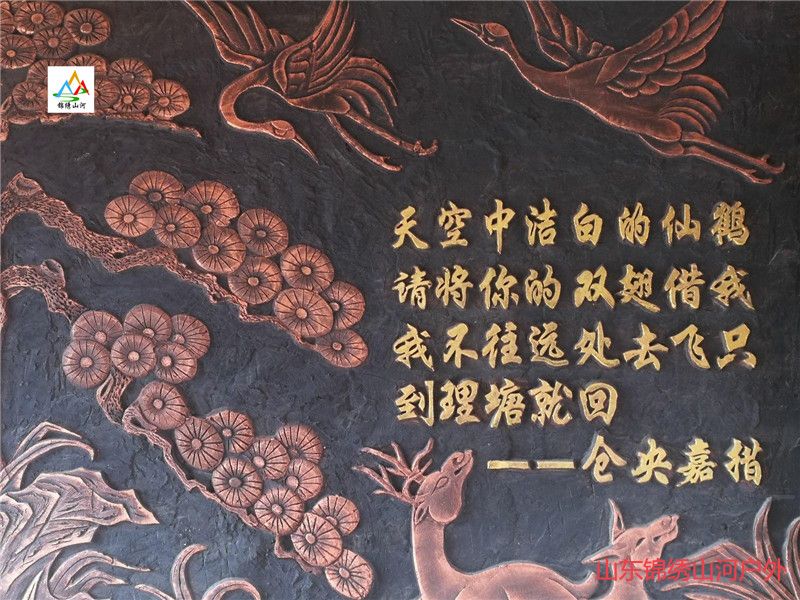 锦绣山河
天空中洁白的仙鹤
请将你的双翅借我
我不往远处去飞只
到理塘就回
——仓央嘉措
山东锦绣山河户外